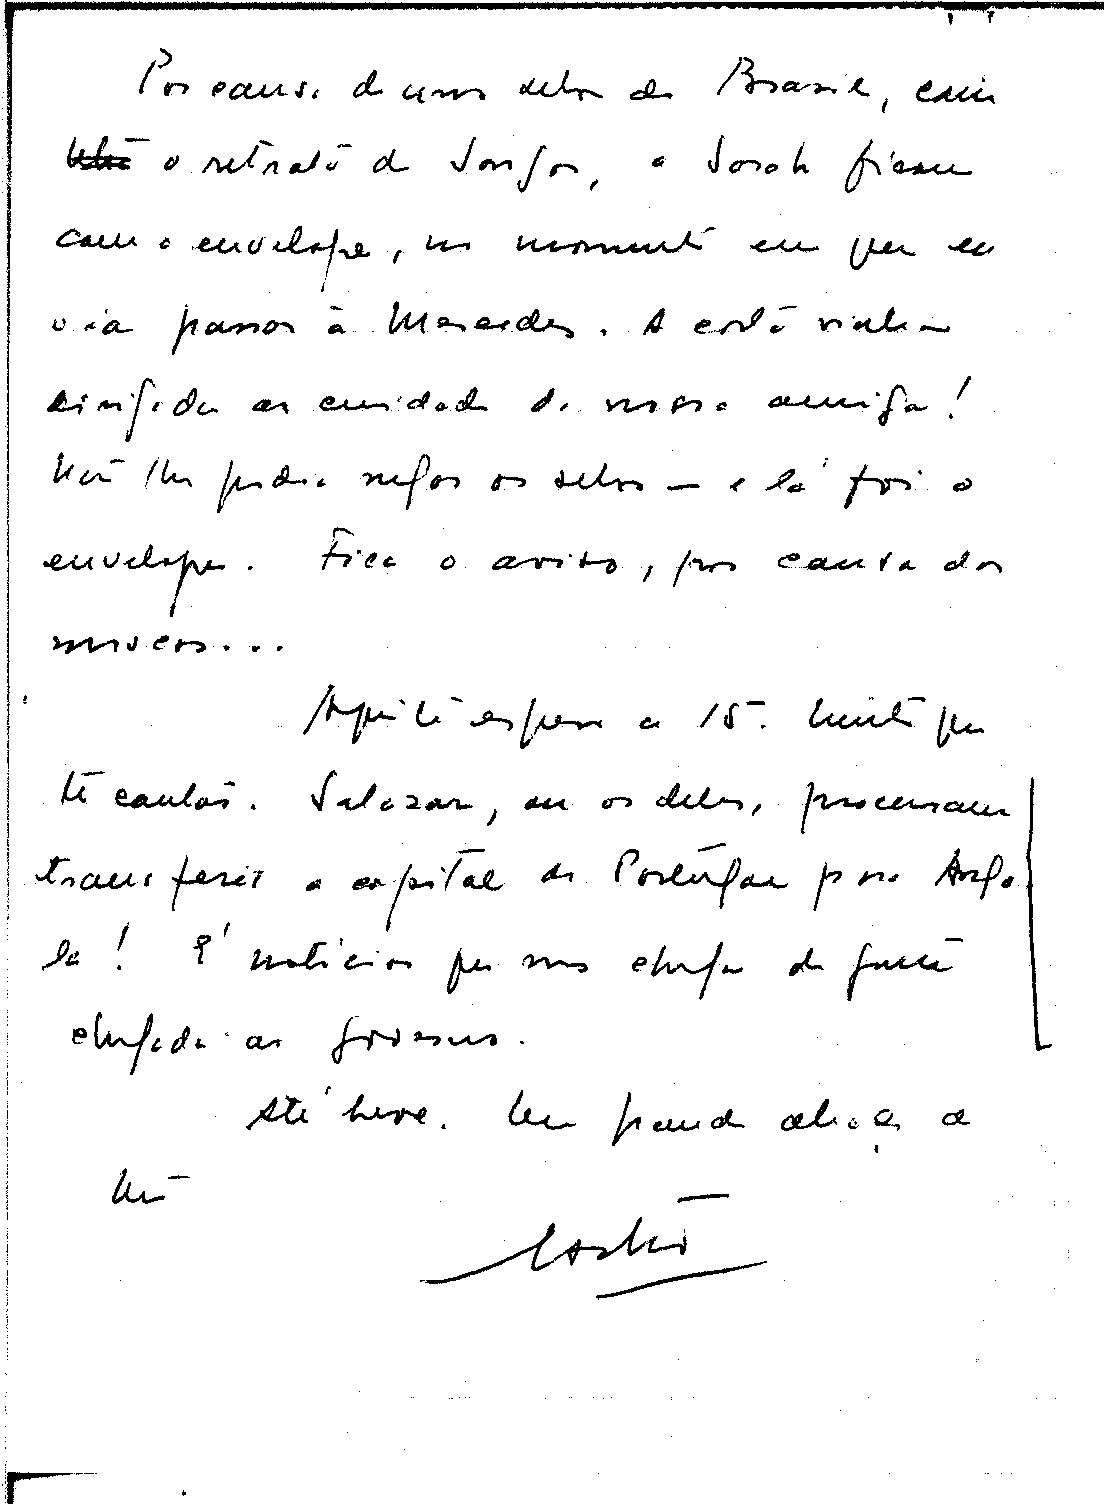 Por causa de uns selos do Brasil, com
o retrato de , a Sarah ficou
com o envelope, no momento em que eu
o ia passar à Mercedes. A carta vinha
dirigida ao cuidado de nossa amiga!
Não lhe podia negar os selos — e lá foi o
envelope. Fica o aviso, por causa das
moscas...
Aqui te espero a 15. Muito que
te contar. Salazar, ou os deles, procuram
transferir a capital de Portugal para Ango
la! É notícia que nos chega de gente
chegada ao governo.
Até breve. Um grande abraço do